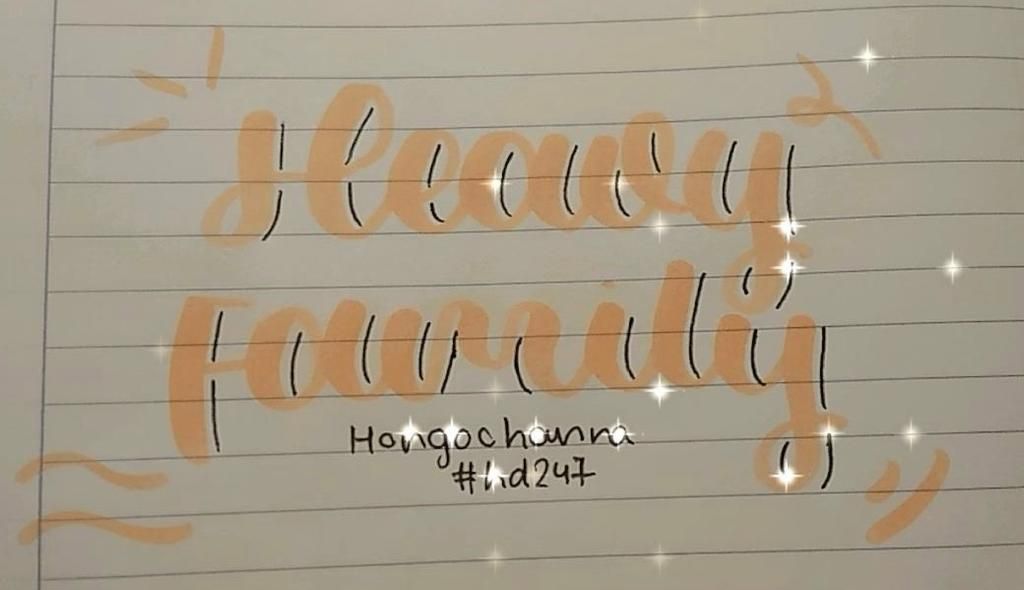 Heavy
Family
Hongochanna
#hd247